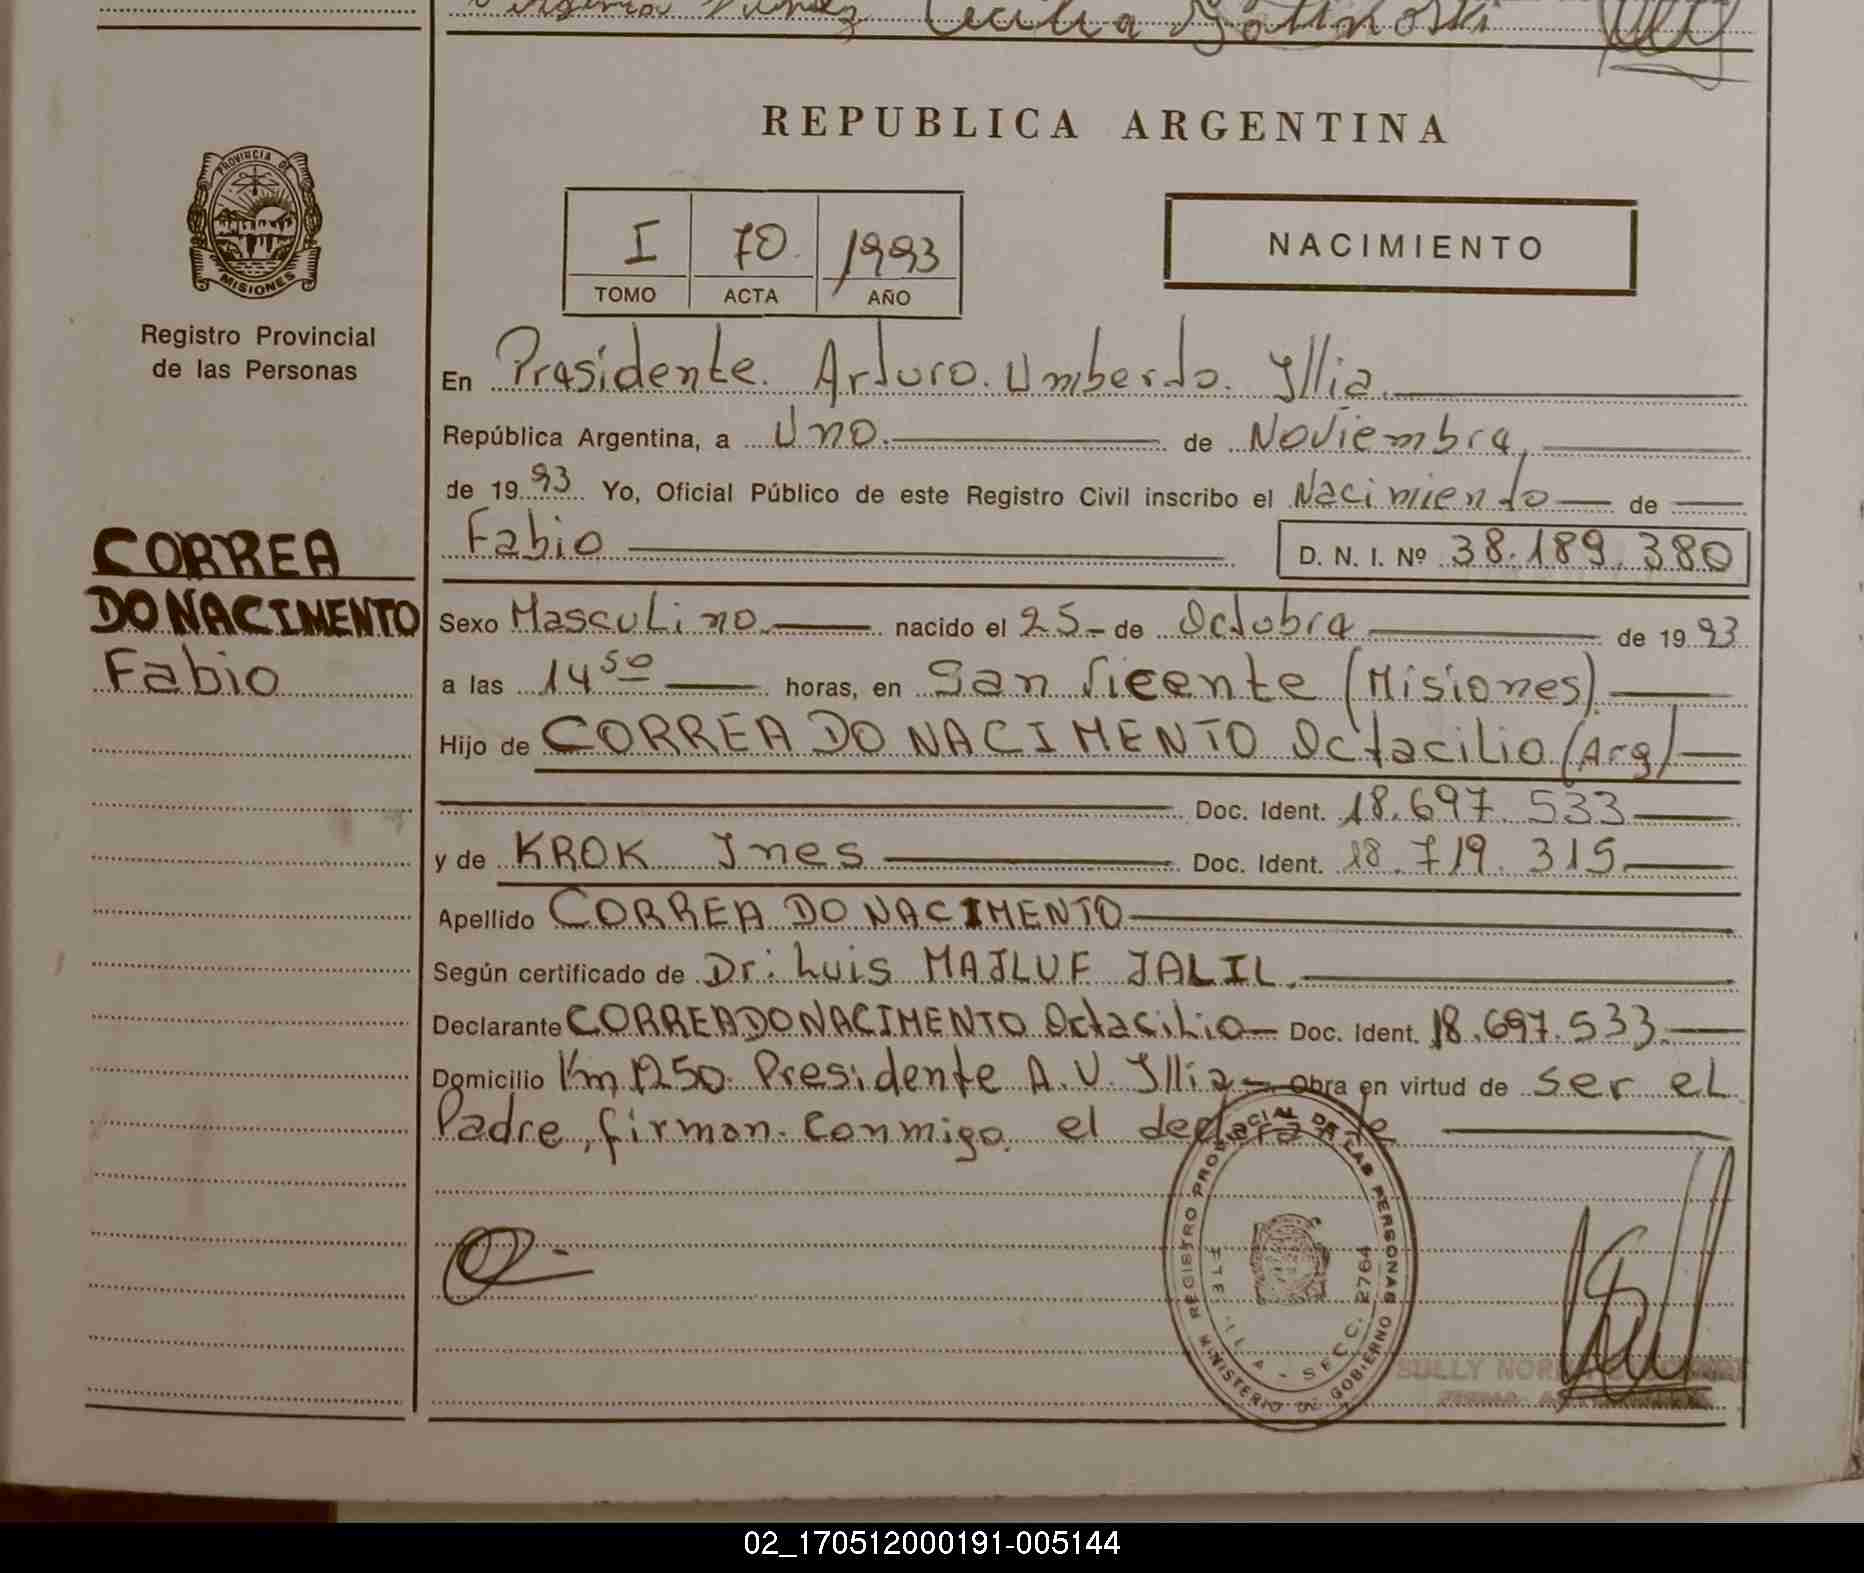 Cecilia
REPUBLICA ARGENTINA
PROVINCIA DE MISIONES
I 70 1993
TOMO ACTA AÑO
NACIMIENTO
Registro Provincial
de las Personas
En Presidente. Arturo. Umberto. Illia.
República Argentina, a Uno. de Noviembre
de 1993 Yo, Oficial Público de este Registro Civil inscribo el Nacimiento de
Fabio D. N. I. Nº 38.189.380
CORREA
DO NACIMENTO
Fabio
Sexo Masculino. nacido el 25 - de Octubre de 1993
a las 14 50 horas, en San Vicente (Misiones)
Hijo de CORREA DO NACIMENTO Octacilio (Arg)
Doc. Ident. 18.697.533
y de KROK Ines Doc. Ident. 18.719.315.
Apellido CORREA DO NACIMENTO
Según certificado de Dr: Luis MAJLUF JALIL.
Declarante CORREA DO NACIMENTO Octacilio Doc. Ident. 18.697.533.
Domicilio Km 1250. Presidente A. U. Illia - Obra en virtud de ser el
Padre, firman. Conmigo. el declarante
REGISTRO PROVINCIAL DE LAS PERSONAS
MINISTERIO DE GOBIERNO
SECC. 2764
SULLY
02_170512000191-005144